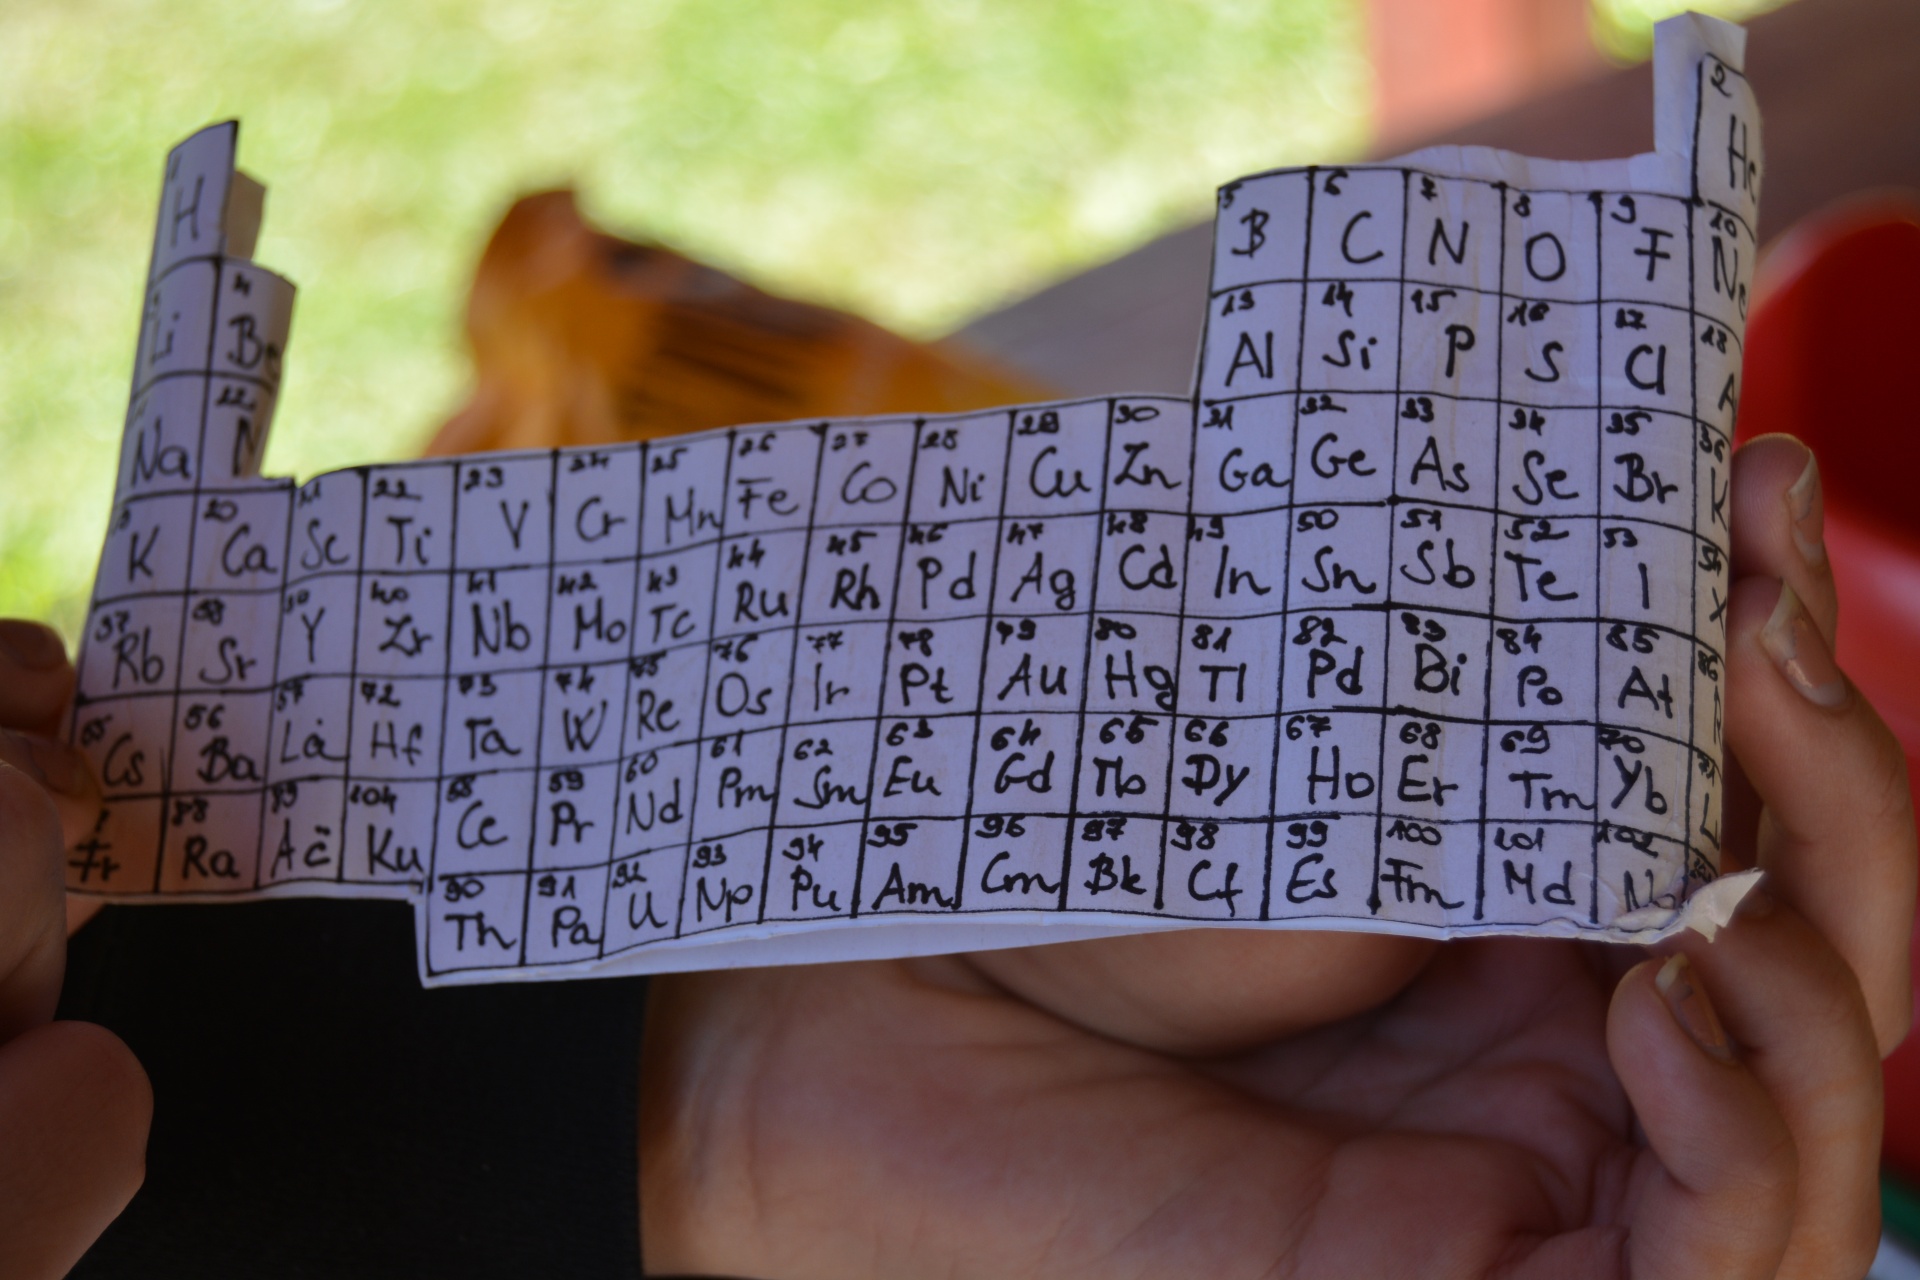 H 2 He
Li 4 Be 5 B 6 C 7 N 8 O 9 F 10 Ne
Na 12 13 Al 14 Si 15 P 16 S 17 Cl 18 A
19 K 20 Ca 21 Sc 22 Ti 23 V 24 Cr 25 Mn 26 Fe 27 Co 28 Ni 29 Cu 30 Zn 31 Ga 32 Ge 33 As 34 Se 35 Br 36 K
37 Rb 38 Sr 39 Y 40 Zr 41 Nb 42 Mo 43 Tc 44 Ru 45 Rh 46 Pd 47 Ag 48 Cd 49 In 50 Sn 51 Sb 52 Te 53 I 54 X
55 Cs 56 Ba 57 La 72 Hf 73 Ta 74 W 75 Re 76 Os 77 Ir 78 Pt 79 Au 80 Hg 81 Tl 82 Pd 83 Bi 84 Po 85 At 86 R
Fr 88 Ra 89 Ac 104 Ku 58 Ce 59 Pr 60 Nd 61 Pm 62 Sm 63 Eu 64 Gd 65 Tb 66 Dy 67 Ho 68 Er 69 Tm 70 Yb 71 L
90 Th 91 Pa 92 U 93 Np 94 Pu 95 Am 96 Cm 97 Bk 98 Cf 99 Es 100 Fm 101 Md 102 No